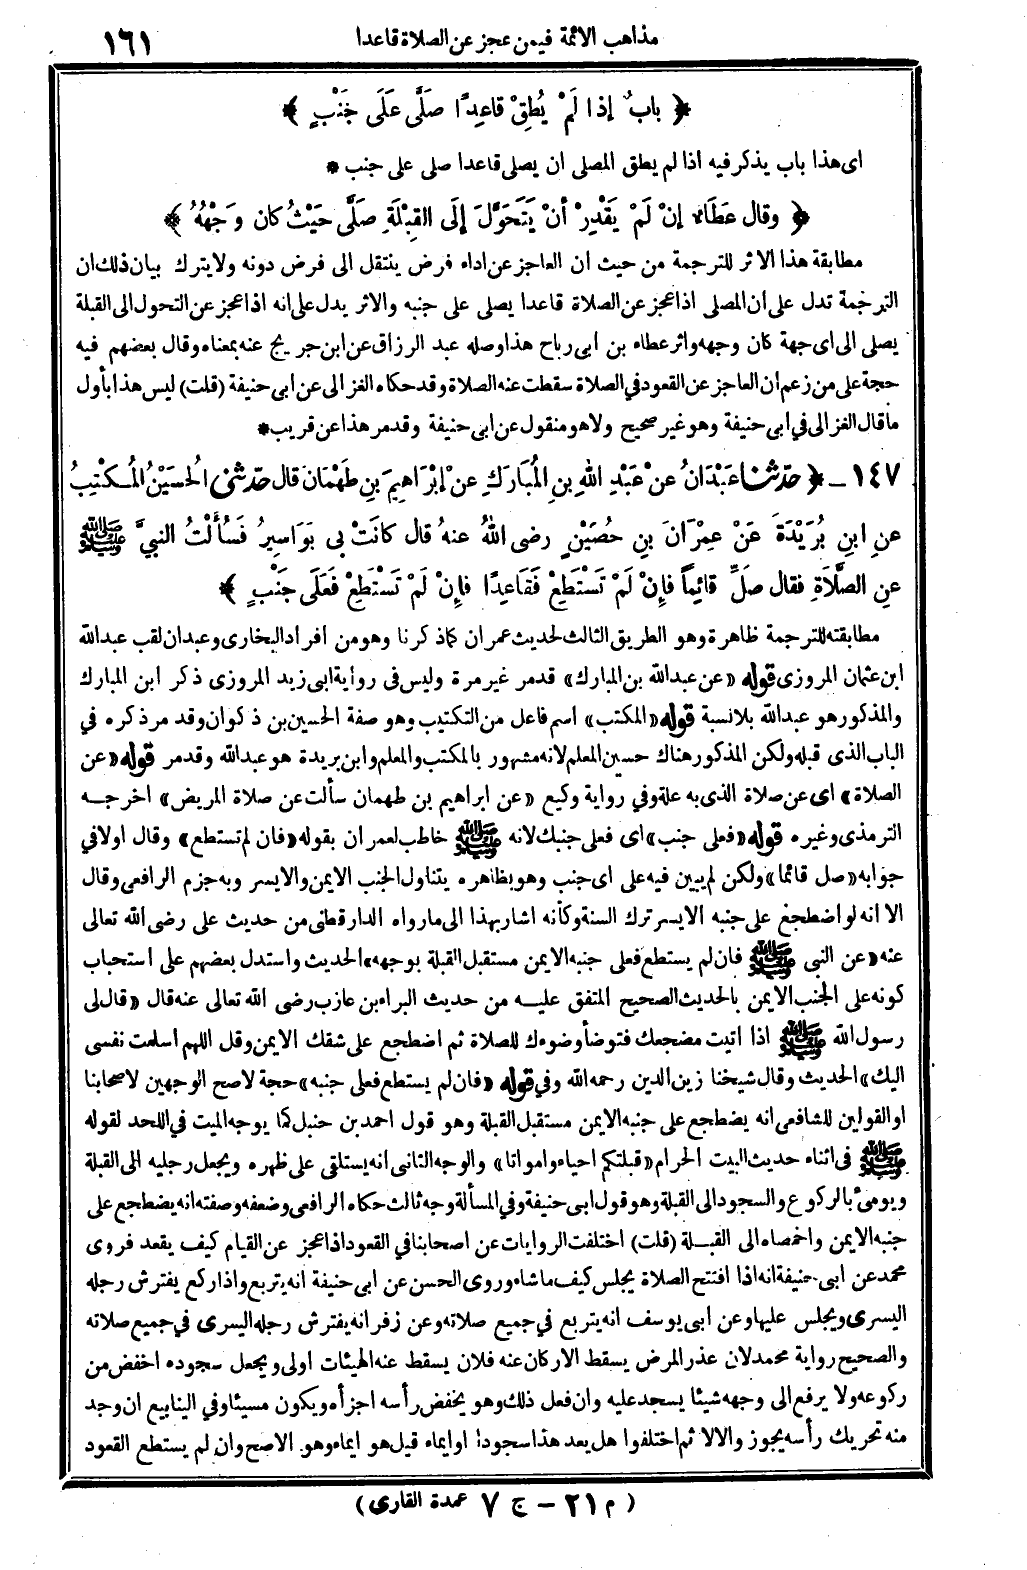 مذاهب الائمة فيمن عجز عن الصلاة قاعدا ١٦١
﴿ بابٌ إذا لَمْ يُطِقْ قاعِدًا صَلَّى عَلَى جَنْبٍ ﴾
اى هذا باب يذكر فيه اذا لم يطق المصلى ان يصلى قاعدا صلى على جنب *
﴿ وقال عَطَاءٌ إنْ لَمْ يَقْدِرْ أنْ يَتَحَوَّلَ إلَى القِبْلَةِ صَلَّى حَيْثُ كان وَجْهُهُ ﴾
مطابقة هذا الاثر للترجمة من حيث ان العاجز عن اداء فرض ينتقل الى فرض دونه ولا يترك بيان ذلك ان
الترجمة تدل على ان المصلى اذا عجز عن الصلاة قاعدا يصلى على جنبه والاثر يدل على انه اذا عجز عن التحول الى القبلة
يصلى الى اى جهة كان وجهه واثر عطاء بن ابى رباح هذا وصله عبد الرزاق عن ابن جريج عنه بمعناه وقال بعضهم فيه
حجة على من زعم ان العاجز عن القعود فى الصلاة سقطت عنه الصلاة وقد حكاه الغزالى عن ابى حنيفة (قلت) ليس هذا بأول
ما قال الغزالى فى ابى حنيفة وهو غير صحيح ولا هو منقول عن ابى حنيفة وقد مر هذا عن قريب *
١٤٧ - ﴿ حدّثنا عَبْدَانُ عنْ عَبْدِ اللهِ بنِ المُبَارَكِ عنْ إبْرَاهِيمَ بنِ طَهْمَانَ قال حدّثنى الحُسَيْنُ المُكْتِبُ
عنِ ابنِ بُرَيْدَةَ عَنْ عِمْرَانَ بنِ حُصَيْنٍ رضى اللهُ عنهُ قال كانَتْ بِى بَوَاسِيرُ فَسَأَلْتُ النبىَّ ﷺ
عنِ الصَّلَاةِ فقال صَلِّ قائِماً فإنْ لَمْ تَسْتَطِعْ فَقَاعِدًا فإنْ لَمْ تَسْتَطِعْ فَعَلَى جَنْبٍ ﴾
مطابقته للترجمة ظاهرة وهو الطريق الثالث لحديث عمران كما ذكرنا وهو من افراد البخارى وعبدان لقب عبدالله
ابن عثمان المروزى قوله «عن عبدالله بن المبارك» قدمر غير مرة وليس فى رواية ابى زيد المروزى ذكر ابن المبارك
والمذكور هو عبدالله بلا نسبة قوله «المكتب» اسم فاعل من التكتيب وهو صفة الحسين بن ذكوان وقد مر ذكره فى
الباب الذى قبله ولكن المذكور هناك حسين المعلم لانه مشهور بالمكتب والمعلم وابن بريدة هو عبدالله وقدمر قوله «عن
الصلاة» اى عن صلاة الذى به علة وفى رواية وكيع «عن ابراهيم بن طهمان سألت عن صلاة المريض» اخرجه
الترمذى وغيره قوله «فعلى جنب» اى فعلى جنبك لانه ﷺ خاطب لعمران بقوله «فان لم تستطع» وقال اولا فى
جوابه «صل قائما» ولكن لم يبين فيه على اى جنب وهو بظاهره يتناول الجنب الايمن والايسر وبه جزم الرافعى وقال
الا انه لو اضطجع على جنبه الايسر ترك السنة وكأنه اشار بهذا الى ما رواه الدارقطنى من حديث على رضى الله تعالى
عنه «عن النبى ﷺ فان لم يستطع فعلى جنبه الايمن مستقبل القبلة بوجهه» الحديث واستدل بعضهم على استحباب
كونه على الجنب الايمن بالحديث الصحيح المتفق عليه من حديث البراء بن عازب رضى الله تعالى عنه قال «قال لى
رسول الله ﷺ اذا اتيت مضجعك فتوضأ وضوءك للصلاة ثم اضطجع على شقك الايمن وقل اللهم اسلمت نفسى
اليك» الحديث وقال شيخنا زين الدين رحمه الله وفى قوله «فان لم يستطع فعلى جنبه» حجة لاصح الوجهين لاصحابنا
او القولين للشافعى انه يضطجع على جنبه الايمن مستقبل القبلة وهو قول احمد بن حنبل كما يوجه الميت فى اللحد لقوله
ﷺ فى اثناء حديث البيت الحرام «قبلتكم احياء وامواتا» والوجه الثانى انه يستلقى على ظهره ويجعل رجليه الى القبلة
ويومئ بالركوع والسجود الى القبلة وهو قول ابى حنيفة وفى المسألة وجه ثالث حكاه الرافعى وضعفه وصفته انه يضطجع على
جنبه الايمن واخمصاه الى القبلة (قلت) اختلفت الروايات عن اصحابنا فى القعود اذا عجز عن القيام كيف يقعد فروى
محمد عن ابى حنيفة انه اذا افتتح الصلاة يجلس كيف ما شاء وروى الحسن عن ابى حنيفة انه يتربع واذا ركع يفترش رجله
اليسرى ويجلس عليها وعن ابى يوسف انه يتربع فى جميع صلاته وعن زفر انه يفترش رجله اليسرى فى جميع صلاته
والصحيح رواية محمد لان عذر المرض يسقط الاركان عنه فلان يسقط عنه الهيئات اولى ويجعل سجوده اخفض من
ركوعه ولا يرفع الى وجهه شيئا يسجد عليه وان فعل ذلك وهو يخفض رأسه اجزأه ويكون مسيئا وفى الينابيع ان وجد
منه تحريك رأسه يجوز والا لا ثم اختلفوا هل يعد هذا سجودا او ايماء قيل هو ايماء وهو الاصح وان لم يستطع القعود
( م ٢١ - ج ٧ عمدة القارى )